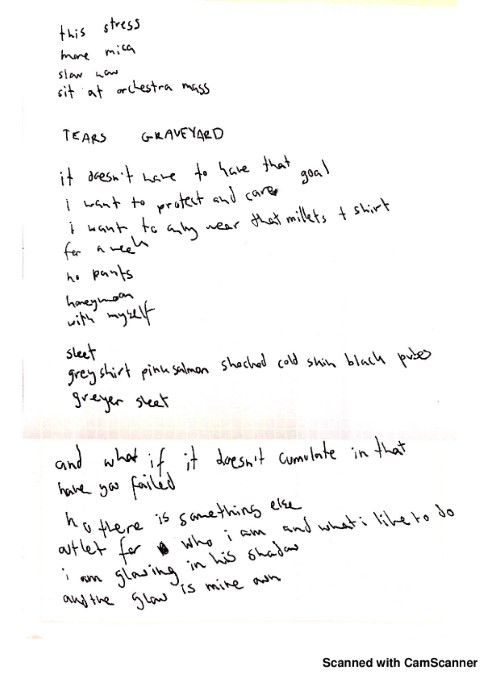 this stress
more mica
slow now
sit at orchestra mass
TEARS GRAVEYARD
it doesn't have to have that goal
i want to protect and care
i want to only wear that millets t shirt
for a week
no pants
honeymoon
with myself
sleet
grey shirt pink salmon shocked cold skin black pubes
greyer sleet
and what if it doesn't cumulate in that
have you failed
no there is something else
outlet for who i am and what i like to do
i am glowing in his shadow
and the glow is mine own
Scanned with CamScanner